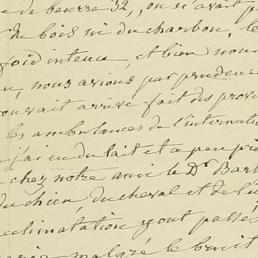 de beurre 32, on n'avait p
de bois ni du charbon, le
froid intence, et bien nous
n, nous avions par prudence
ouvait arrivé fait des prov
les ambulances de l'internati
j'ai eu du lait et a peu pri
chez notre ami le Dr Bart
du chien, du cheval et de l'é
cclimatation y ont passés
malgré le bruit